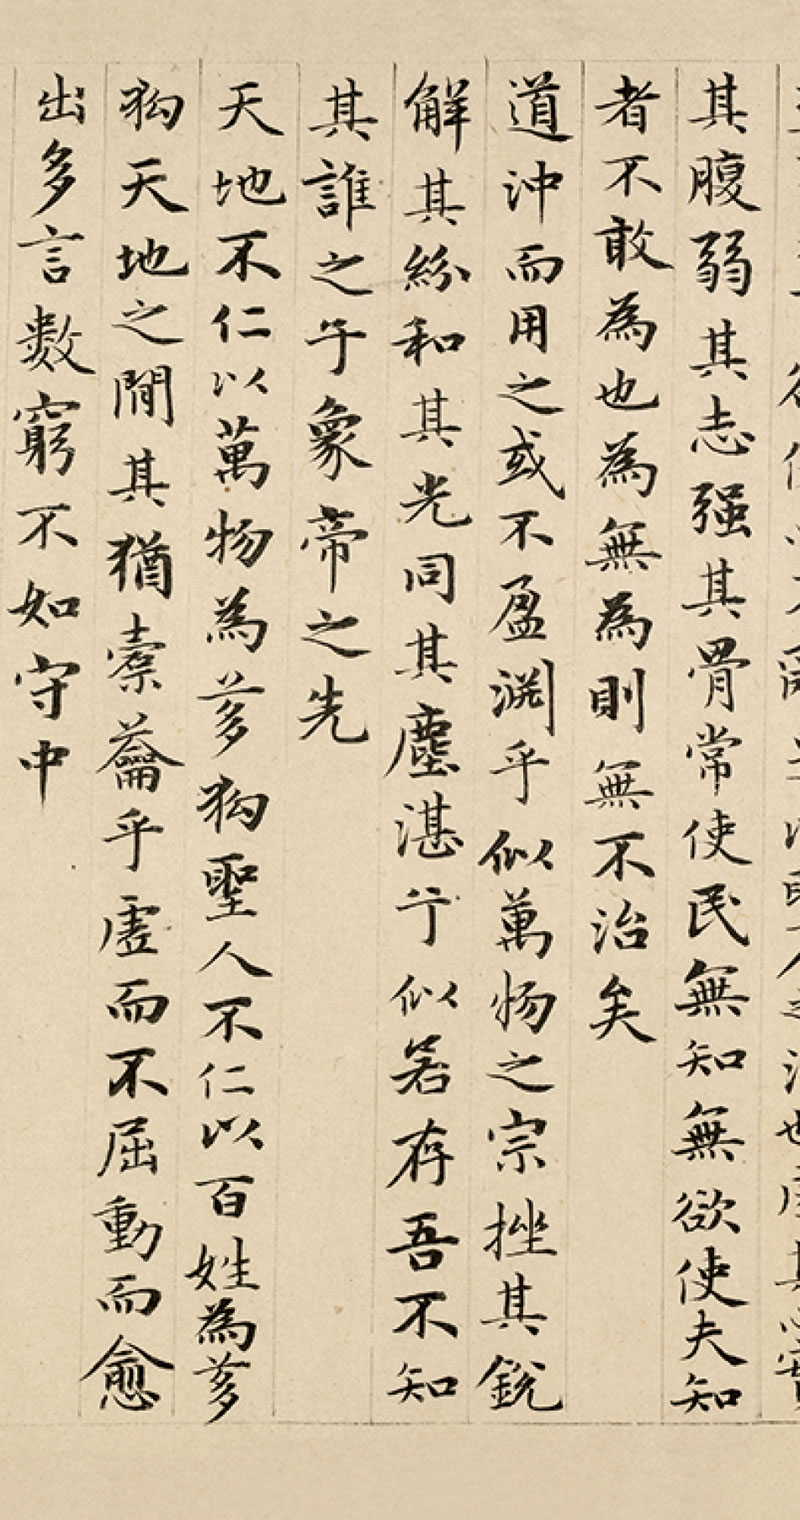 其腹弱其志强其骨常使民無知無欲使夫知
者不敢為也為無為則無不治矣
道沖而用之或不盈淵乎似萬物之宗挫其銳
解其紛和其光同其塵湛兮似若存吾不知
其誰之子象帝之先
天地不仁以萬物為芻狗聖人不仁以百姓為芻
狗天地之間其猶橐籥乎虛而不屈動而愈
出多言數窮不如守中